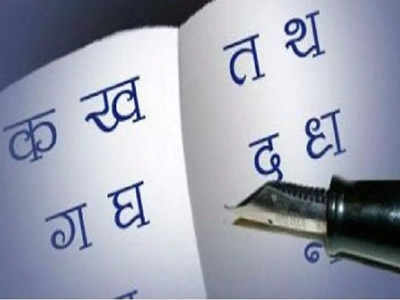 क ख
ग घ
त थ
द ध